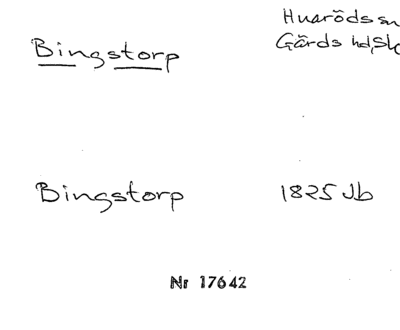 Bingstorp
Huarödssn
Gärds hd, Sk
Bingstorp
1825 Jb
Nr 17642